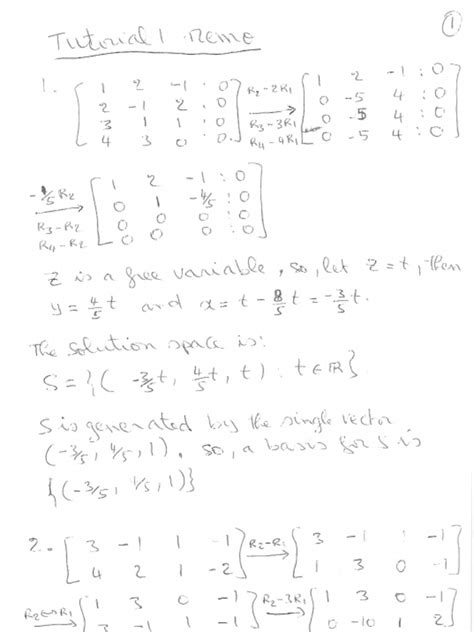 ①
Tutorial 1 Memo
1. [1 2 -1 : 0; 2 -1 2 : 0; 3 1 1 : 0; 4 3 0 : 0] R2-2R1, R3-3R1, R4-4R1 → [1 2 -1 : 0; 0 -5 4 : 0; 0 -5 4 : 0; 0 -5 4 : 0]
-1/5 R2, R3-R2, R4-R2 → [1 2 -1 : 0; 0 1 -4/5 : 0; 0 0 0 : 0; 0 0 0 : 0]
z is a free variable, so, let z = t, then
y = 4/5 t and x = t - 8/5 t = -3/5 t.
The solution space is:
S = {( -3/5 t, 4/5 t, t) : t ∈ ℝ}.
S is generated by the single vector
(-3/5, 4/5, 1). So, a basis for S is
{(-3/5, 4/5, 1)}
2. [3 -1 1 -1; 4 2 1 -2] R2-R1 → [3 -1 1 -1; 1 3 0 -1]
R2↔R1 [1 3 0 -1; 3 -1 1 -1] R2-3R1 → [1 3 0 -1; 0 -10 1 2]